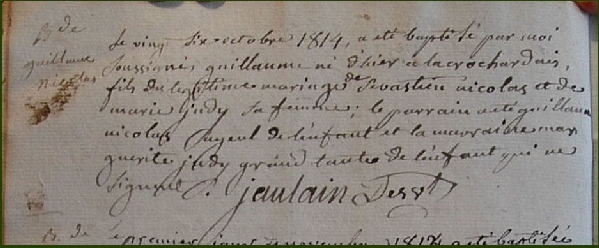 B. de
guillaume
Nicolas
Le vingt six octobre 1814, a eté baptisé par moi
soussigné, guillaume né d'hier a lacrochardais,
fils du legitime mariage de Sevastien nicolas et de
marie judy sa femme; le parrain a eté guillaume
nicolas de l'enfant et la marraine mar
guerite judy grand tante de l'enfant qui ne
signent. jaulain Dess.t
B. de Le premier jour novembre 1814 a eté baptisée